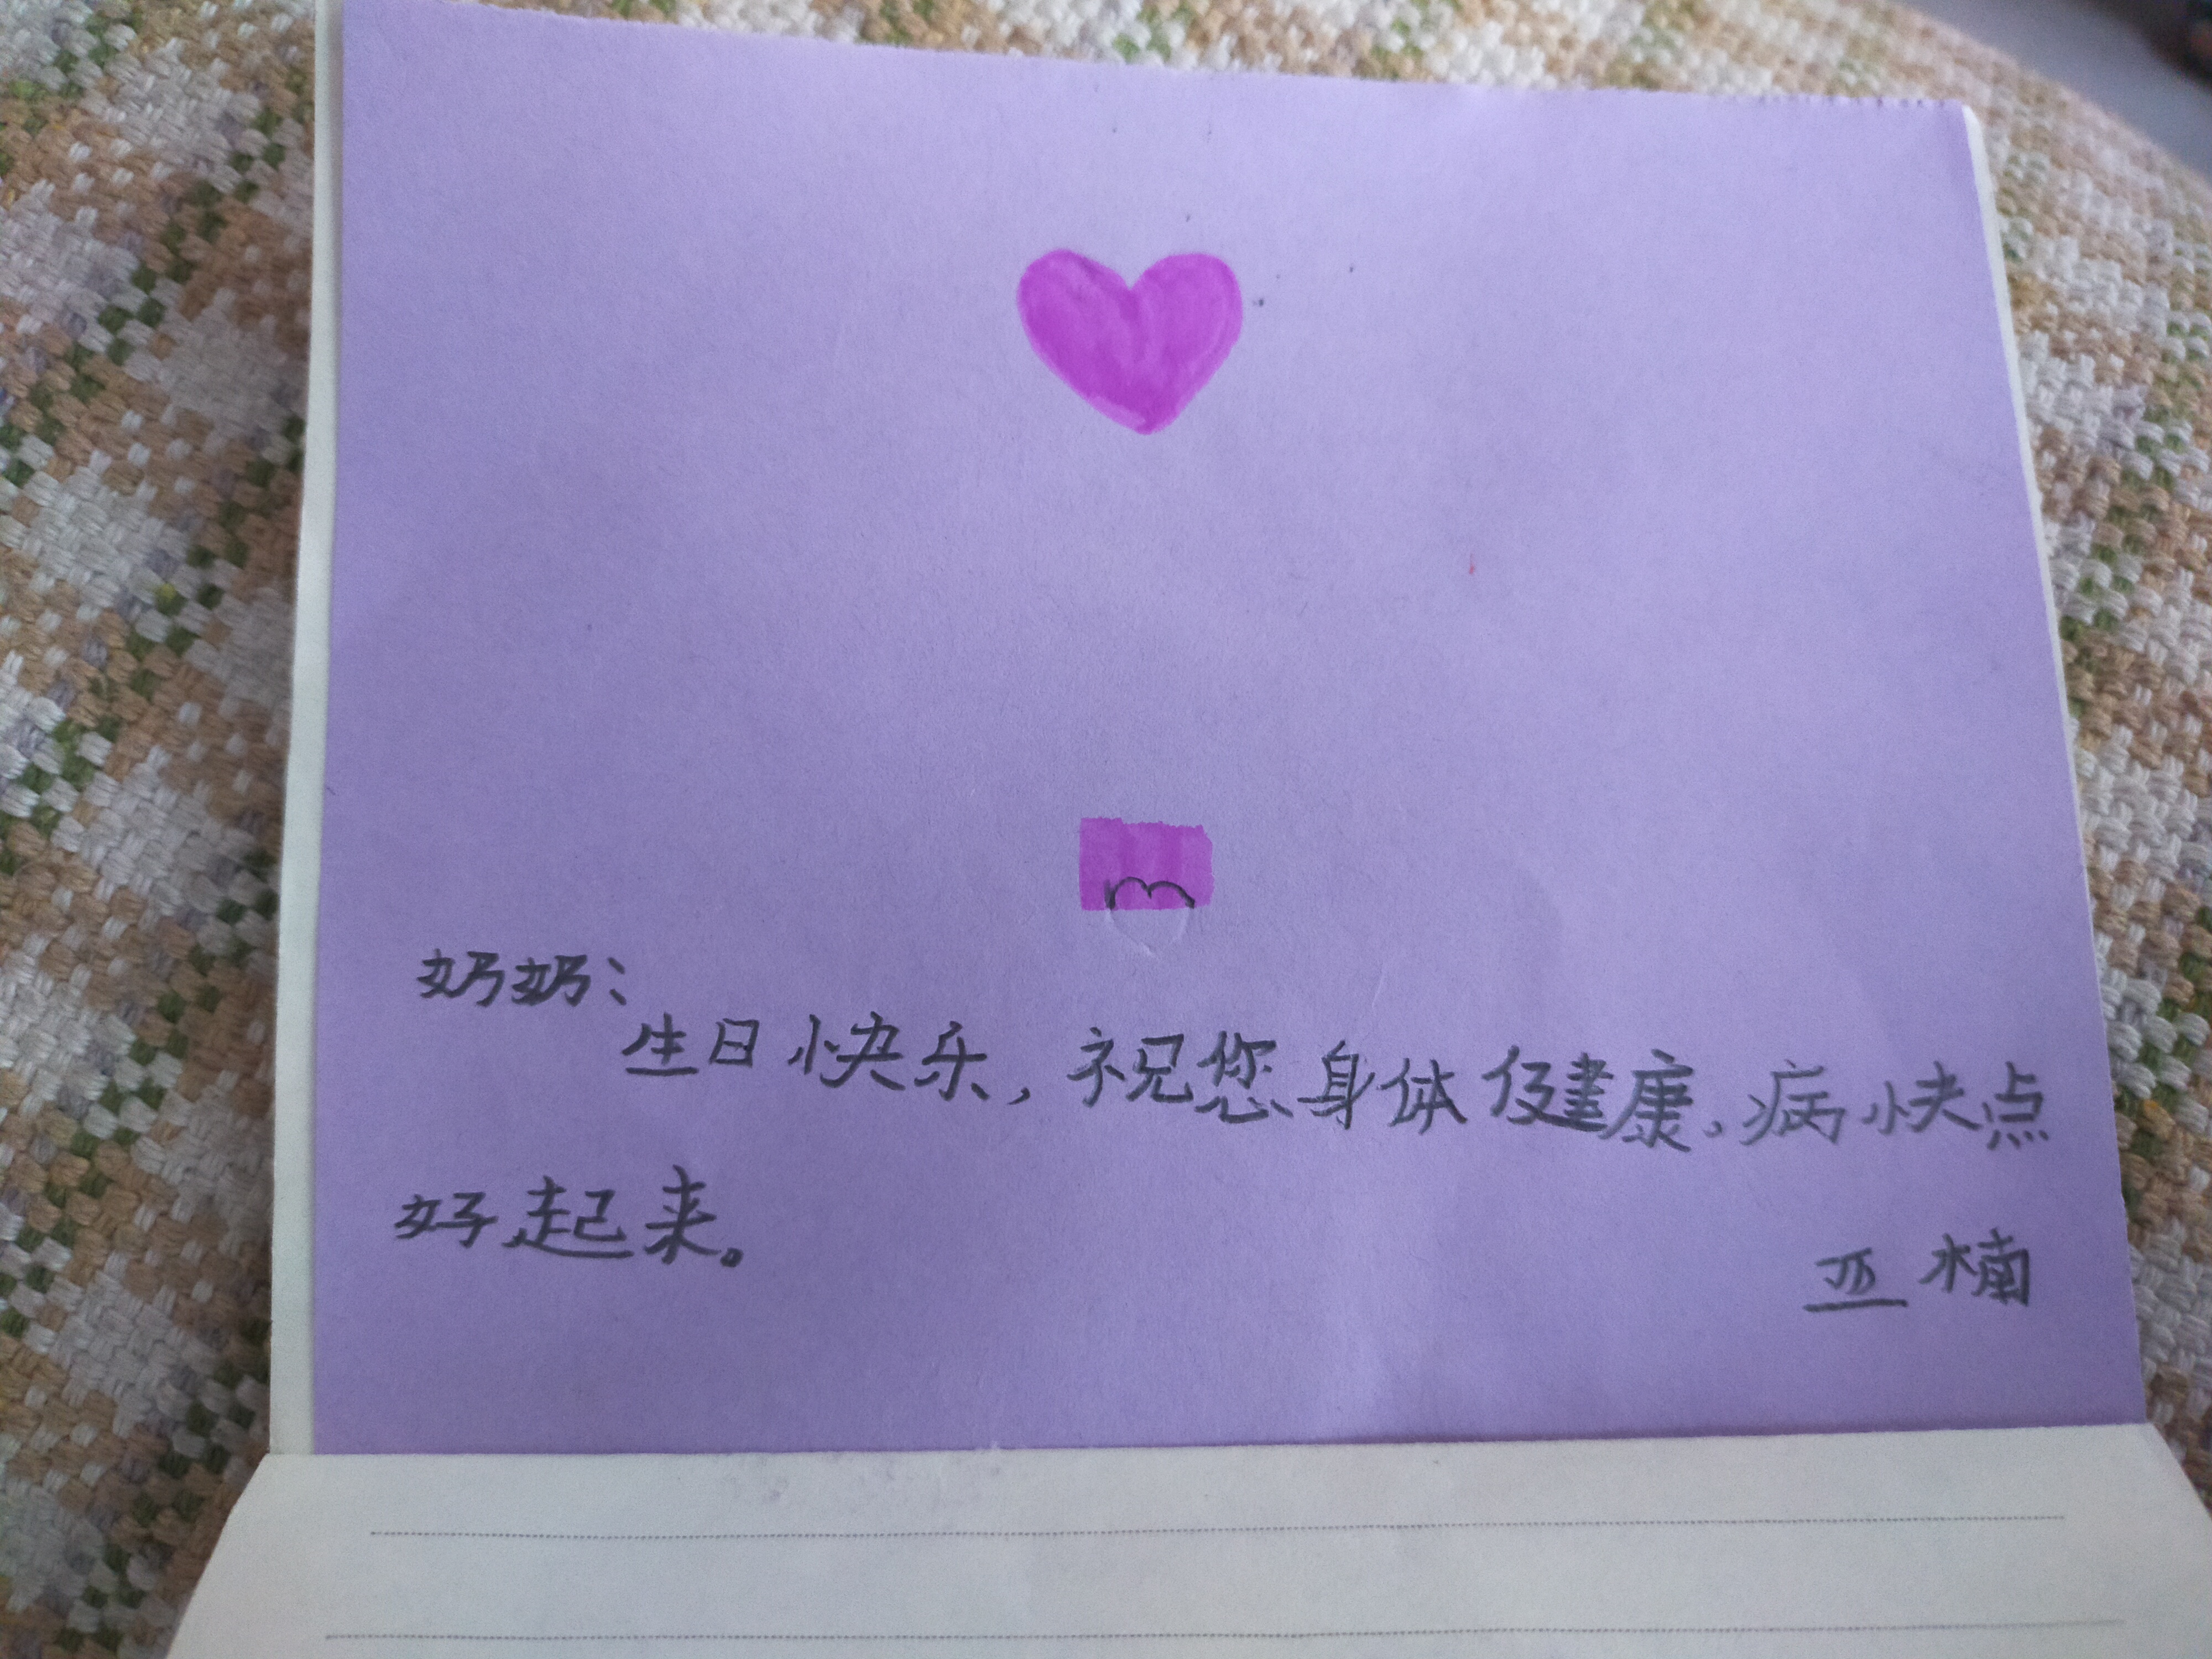 奶奶：
生日快乐，祝您身体健康，病快点
好起来。
亚楠